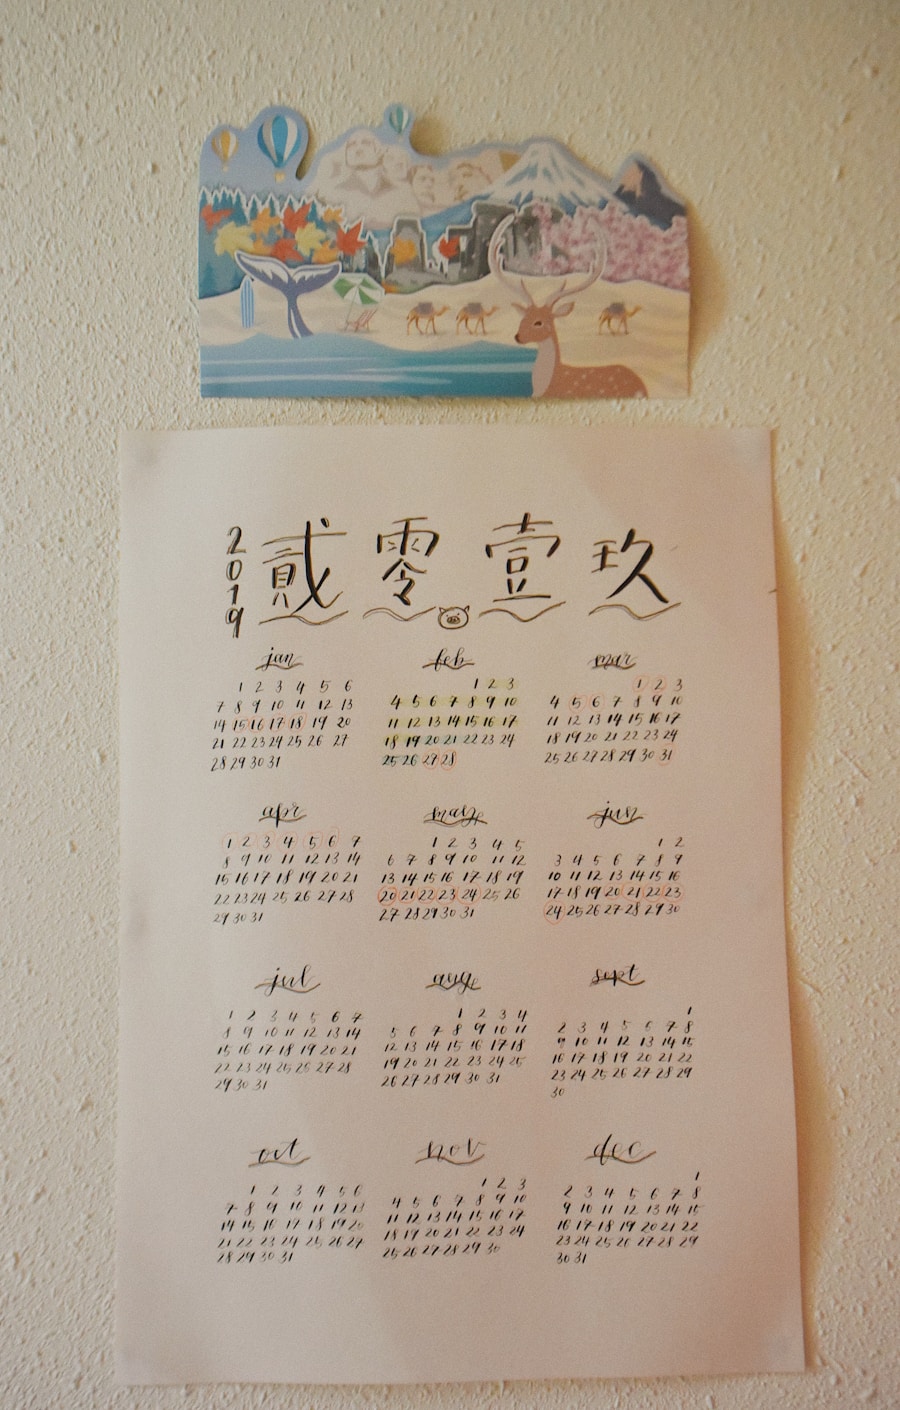 2019
貳零壹玖
jan
1 2 3 4 5 6
7 8 9 10 11 12 13
14 15 16 17 18 19 20
21 22 23 24 25 26 27
28 29 30 31
feb
1 2 3
4 5 6 7 8 9 10
11 12 13 14 15 16 17
18 19 20 21 22 23 24
25 26 27 28
mar
1 2 3
4 5 6 7 8 9 10
11 12 13 14 15 16 17
18 19 20 21 22 23 24
25 26 27 28 29 30 31
apr
1 2 3 4 5 6 7
8 9 10 11 12 13 14
15 16 17 18 19 20 21
22 23 24 25 26 27 28
29 30 31
may
1 2 3 4 5
6 7 8 9 10 11 12
13 14 15 16 17 18 19
20 21 22 23 24 25 26
27 28 29 30 31
jun
1 2
3 4 5 6 7 8 9
10 11 12 13 14 15 16
17 18 19 20 21 22 23
24 25 26 27 28 29 30
jul
1 2 3 4 5 6 7
8 9 10 11 12 13 14
15 16 17 18 19 20 21
22 23 24 25 26 27 28
29 30 31
aug
1 2 3 4
5 6 7 8 9 10 11
12 13 14 15 16 17 18
19 20 21 22 23 24 25
26 27 28 29 30 31
sept
1
2 3 4 5 6 7 8
9 10 11 12 13 14 15
16 17 18 19 20 21 22
23 24 25 26 27 28 29
30
oct
1 2 3 4 5 6
7 8 9 10 11 12 13
14 15 16 17 18 19 20
21 22 23 24 25 26 27
28 29 30 31
nov
1 2 3
4 5 6 7 8 9 10
11 12 13 14 15 16 17
18 19 20 21 22 23 24
25 26 27 28 29 30
dec
1
2 3 4 5 6 7 8
9 10 11 12 13 14 15
16 17 18 19 20 21 22
23 24 25 26 27 28 29
30 31